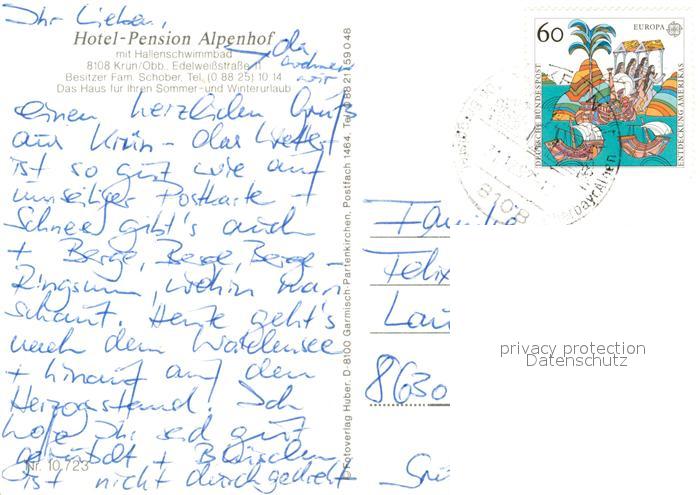 Ihr Lieben,
Hotel-Pension Alpenhof
mit Hallenschwimmbad
8108 Krün/Obb. Edelweißstraße
Besitzer Fam. Schober, Tel. (0 88 25) 10 14
Das Haus für Ihren Sommer- und Winterurlaub
da
wohnen
wir
einen herzlichen Gruß
aus Krün - das Wetter
ist so gut wie auf
umseitiger Postkarte -
Schnee gibt's auch
+ Berge, Berge, Berge -
Ringsum, wohin man
schaut. Heute geht's
nach dem Walchensee
+ hinauf auf den
Herzogstand! Ich
hoffe Ihr seid gut
+
ist nicht durchgedreht
Nr. 10.723
© Fotoverlag Huber, D-8100 Garmisch-Partenkirchen, Postfach 1464, Tel. 0 88 21/5 90 48
60
EUROPA
DEUTSCHE BUNDESPOST
ENTDECKUNG AMERIKAS
8108
Familie
Felix
Lau
8630
privacy protection
Datenschutz